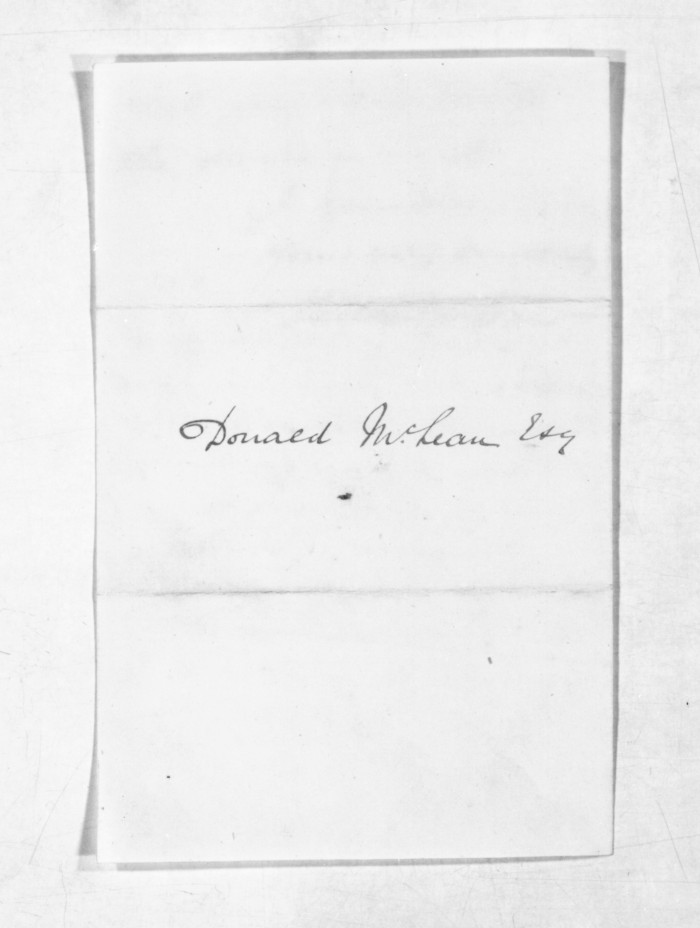 Donald McLean Esq